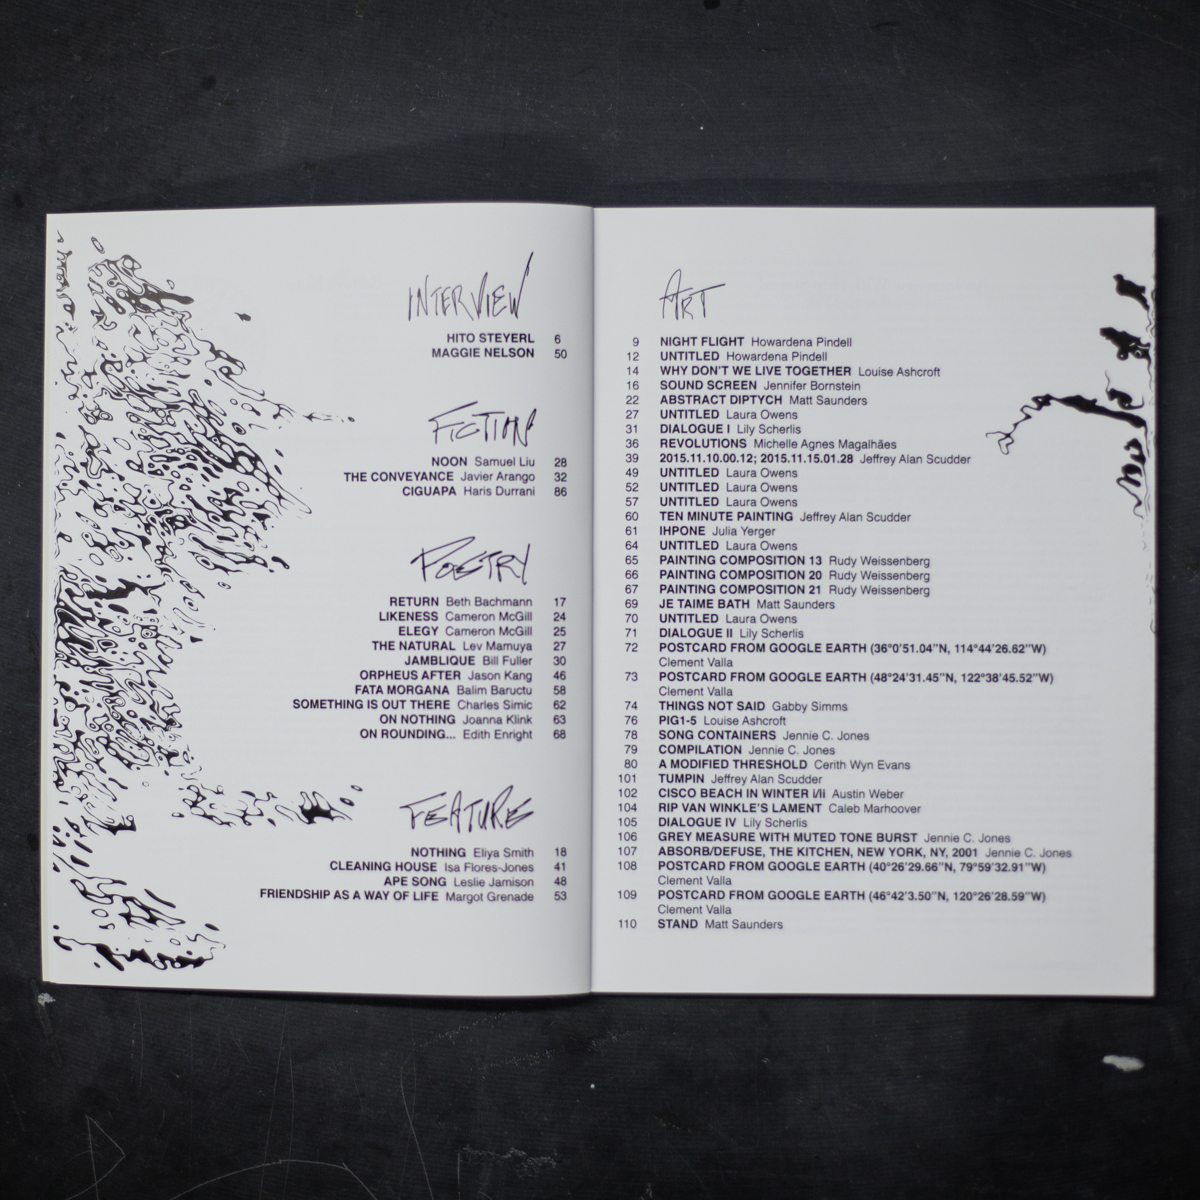 INTERVIEW
HITO STEYERL 6
MAGGIE NELSON 50
FICTION
NOON Samuel Liu 28
THE CONVEYANCE Javier Arango 32
CIGUAPA Haris Durrani 86
POETRY
RETURN Beth Bachmann 17
LIKENESS Cameron McGill 24
ELEGY Cameron McGill 25
THE NATURAL Lev Mamuya 27
JAMBLIQUE Bill Fuller 30
ORPHEUS AFTER Jason Kang 46
FATA MORGANA Balim Barutcu 58
SOMETHING IS OUT THERE Charles Simic 62
ON NOTHING Joanna Klink 63
ON ROUNDING... Edith Enright 68
FEATURE
NOTHING Eliya Smith 18
CLEANING HOUSE Isa Flores-Jones 41
APE SONG Leslie Jamison 48
FRIENDSHIP AS A WAY OF LIFE Margot Grenade 53
ART
9 NIGHT FLIGHT Howardena Pindell
12 UNTITLED Howardena Pindell
14 WHY DON'T WE LIVE TOGETHER Louise Ashcroft
16 SOUND SCREEN Jennifer Bornstein
22 ABSTRACT DIPTYCH Matt Saunders
27 UNTITLED Laura Owens
31 DIALOGUE I Lily Scherlis
36 REVOLUTIONS Michelle Agnes Magalhães
39 2015.11.10.00.12; 2015.11.15.01.28 Jeffrey Alan Scudder
49 UNTITLED Laura Owens
52 UNTITLED Laura Owens
57 UNTITLED Laura Owens
60 TEN MINUTE PAINTING Jeffrey Alan Scudder
61 IHPONE Julia Yerger
64 UNTITLED Laura Owens
65 PAINTING COMPOSITION 13 Rudy Weissenberg
66 PAINTING COMPOSITION 20 Rudy Weissenberg
67 PAINTING COMPOSITION 21 Rudy Weissenberg
69 JE TAIME BATH Matt Saunders
70 UNTITLED Laura Owens
71 DIALOGUE II Lily Scherlis
72 POSTCARD FROM GOOGLE EARTH (36°0'51.04"N, 114°44'26.62"W)
Clement Valla
73 POSTCARD FROM GOOGLE EARTH (48°24'31.45"N, 122°38'45.52"W)
Clement Valla
74 THINGS NOT SAID Gabby Simms
76 PIG1-5 Louise Ashcroft
78 SONG CONTAINERS Jennie C. Jones
79 COMPILATION Jennie C. Jones
80 A MODIFIED THRESHOLD Cerith Wyn Evans
101 TUMPIN Jeffrey Alan Scudder
102 CISCO BEACH IN WINTER I/II Austin Weber
104 RIP VAN WINKLE'S LAMENT Caleb Marhoover
105 DIALOGUE IV Lily Scherlis
106 GREY MEASURE WITH MUTED TONE BURST Jennie C. Jones
107 ABSORB/DEFUSE, THE KITCHEN, NEW YORK, NY, 2001 Jennie C. Jones
108 POSTCARD FROM GOOGLE EARTH (40°26'29.66"N, 79°59'32.91"W)
Clement Valla
109 POSTCARD FROM GOOGLE EARTH (46°42'3.50"N, 120°26'28.59"W)
Clement Valla
110 STAND Matt Saunders